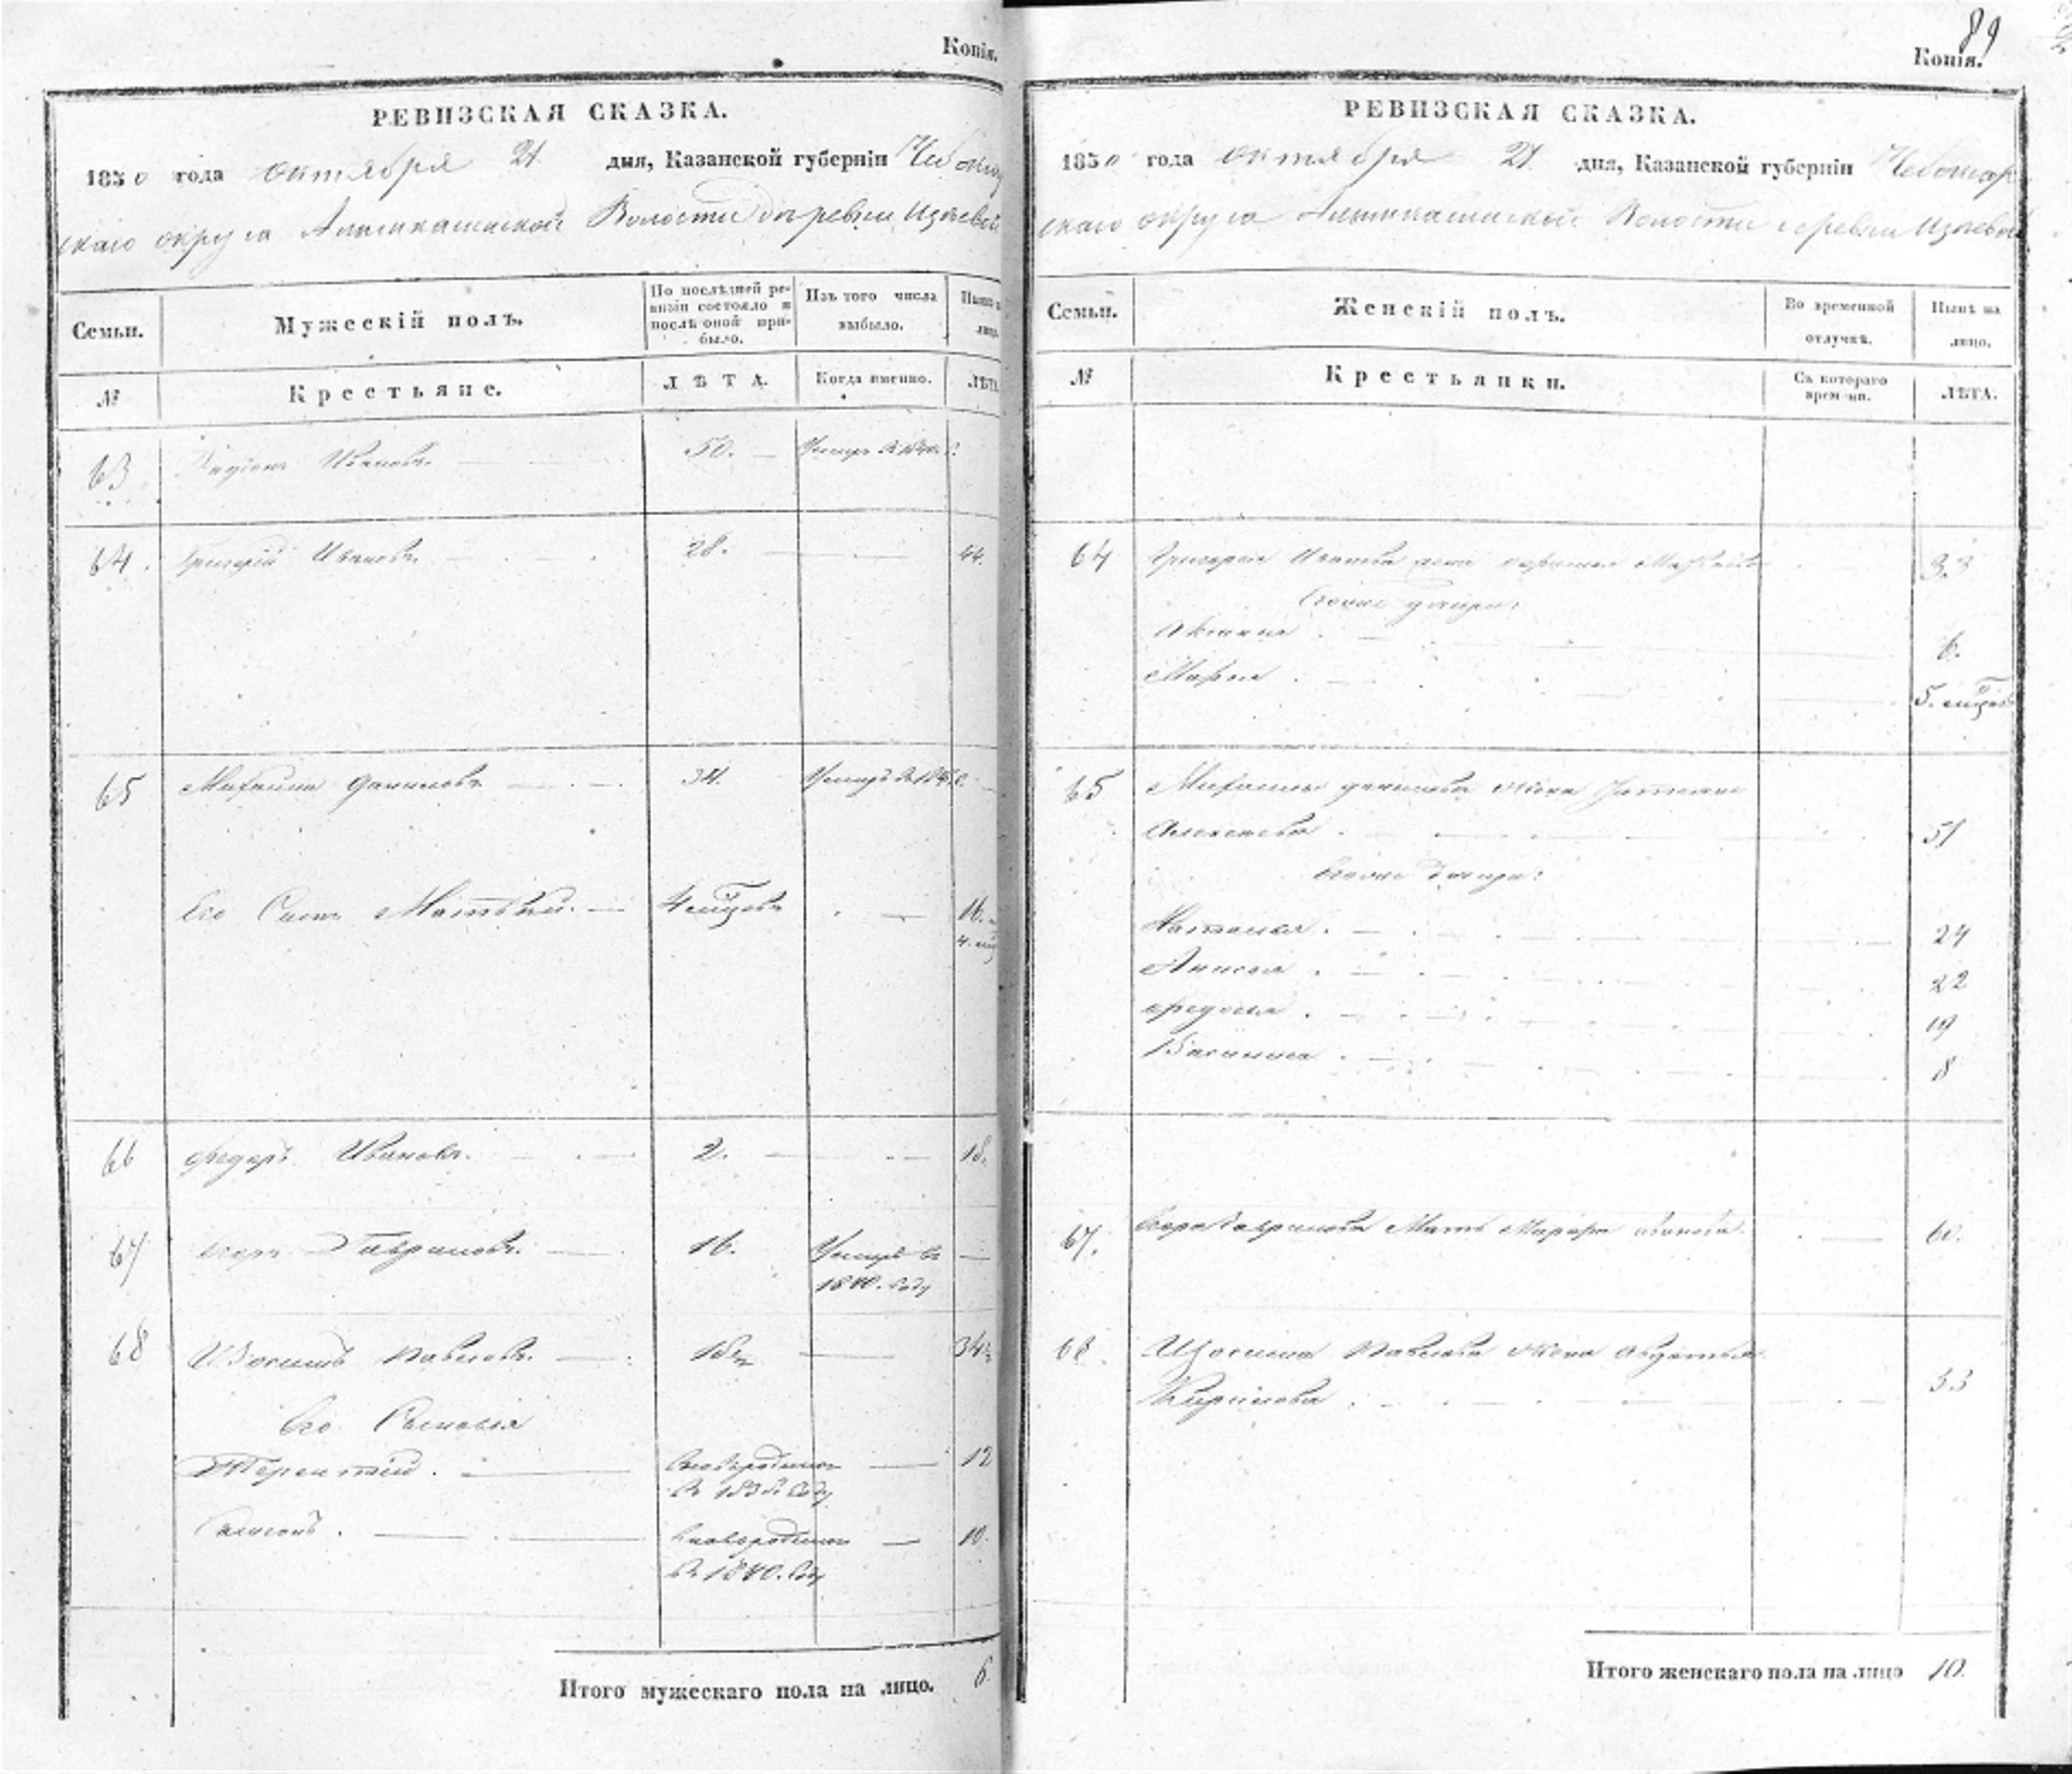 Копія.
РЕВИЗСКАЯ СКАЗКА.
1850 года октября 21 дня, Казанской губерніи Чебокар
скаго округа Волости деревни
Семьи. Мужескій полъ. По послѣдней ре-
визіи состояло и
послѣ оной при-
было. Изъ того числа
выбыло. Нынѣ на
лицо.
№ Крестьяне. ЛѢТА. Когда именно. ЛѢТА
63 Ивановъ. 50. Умеръ
64. Григорій Ивановъ. 28. 44.
65 Михаила Даниловъ 34. Умеръ
Его Сынъ Матвей. 4 мѣсяцовъ 16.
4. мѣ
66 Федоръ Ивановъ. 2. 18.
67 Егоръ Гавриловъ. 16. Умеръ въ
1840. Году
68 Павловъ. 18½ 34½
Его Сыновья
Терентий. Новорожденъ
в 1838 Году 12
Самсонъ. Новорожденъ
въ 1840. Году 10.
Итого мужескаго пола на лицо. 6.
89
Копія.
РЕВИЗСКАЯ СКАЗКА.
1850 года октября 21 дня, Казанской губерніи Чебокар
скаго округа Волости деревни
Семьи. Женскій полъ. Во временной
отлучкѣ. Нынѣ на
лицо.
№ Крестьянки. Съ котораго
времени. ЛѢТА.
64 Григорья Иванова жена 33
Его дочери
6.
Марья 5. мѣсяцовъ
65 Михаилы Данилова жена Татьяна
Алексѣева 51
Его дочери
Наталья 24
Анисья 22
Федосья 19
Василиса 8
67. Егора Гаврилова Мать Марфа Иванова. 60.
68. Павлова жена Авдотья
Кирилова 33
Итого женскаго пола на лицо 10.